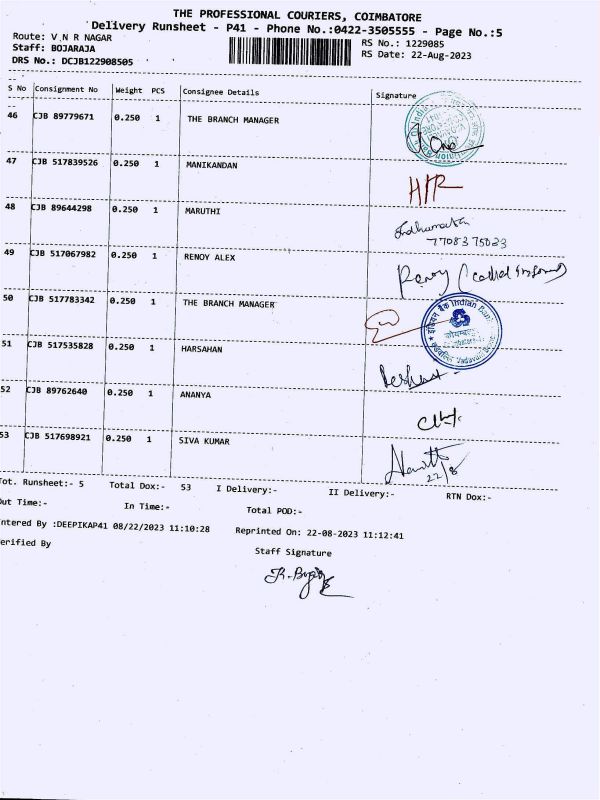 THE PROFESSIONAL COURIERS, COIMBATORE
Delivery Runsheet - P41 - Phone No.:0422-3505555 - Page No.:5
Route: V N R NAGAR RS No.: 1229085
Staff: BOJARAJA RS Date: 22-Aug-2023
DRS No.: DCJB122908505
S No Consignment No Weight PCS Consignee Details Signature
46 CJB 89779671 0.250 1 THE BRANCH MANAGER
47 CJB 517839526 0.250 1 MANIKANDAN
48 CJB 89644298 0.250 1 MARUTHI
7708375023
49 CJB 517067982 0.250 1 RENOY ALEX
Renoy
50 CJB 517783342 0.250 1 THE BRANCH MANAGER
Indian Bank
51 CJB 517535828 0.250 1 HARSAHAN
52 CJB 89762640 0.250 1 ANANYA
53 CJB 517698921 0.250 1 SIVA KUMAR
22/8
Tot. Runsheet:- 5 Total Dox:- 53 I Delivery:- II Delivery:- RTN Dox:-
Out Time:- In Time:- Total POD:-
ntered By :DEEPIKAP41 08/22/2023 11:10:28 Reprinted On: 22-08-2023 11:12:41
erified By
Staff Signature